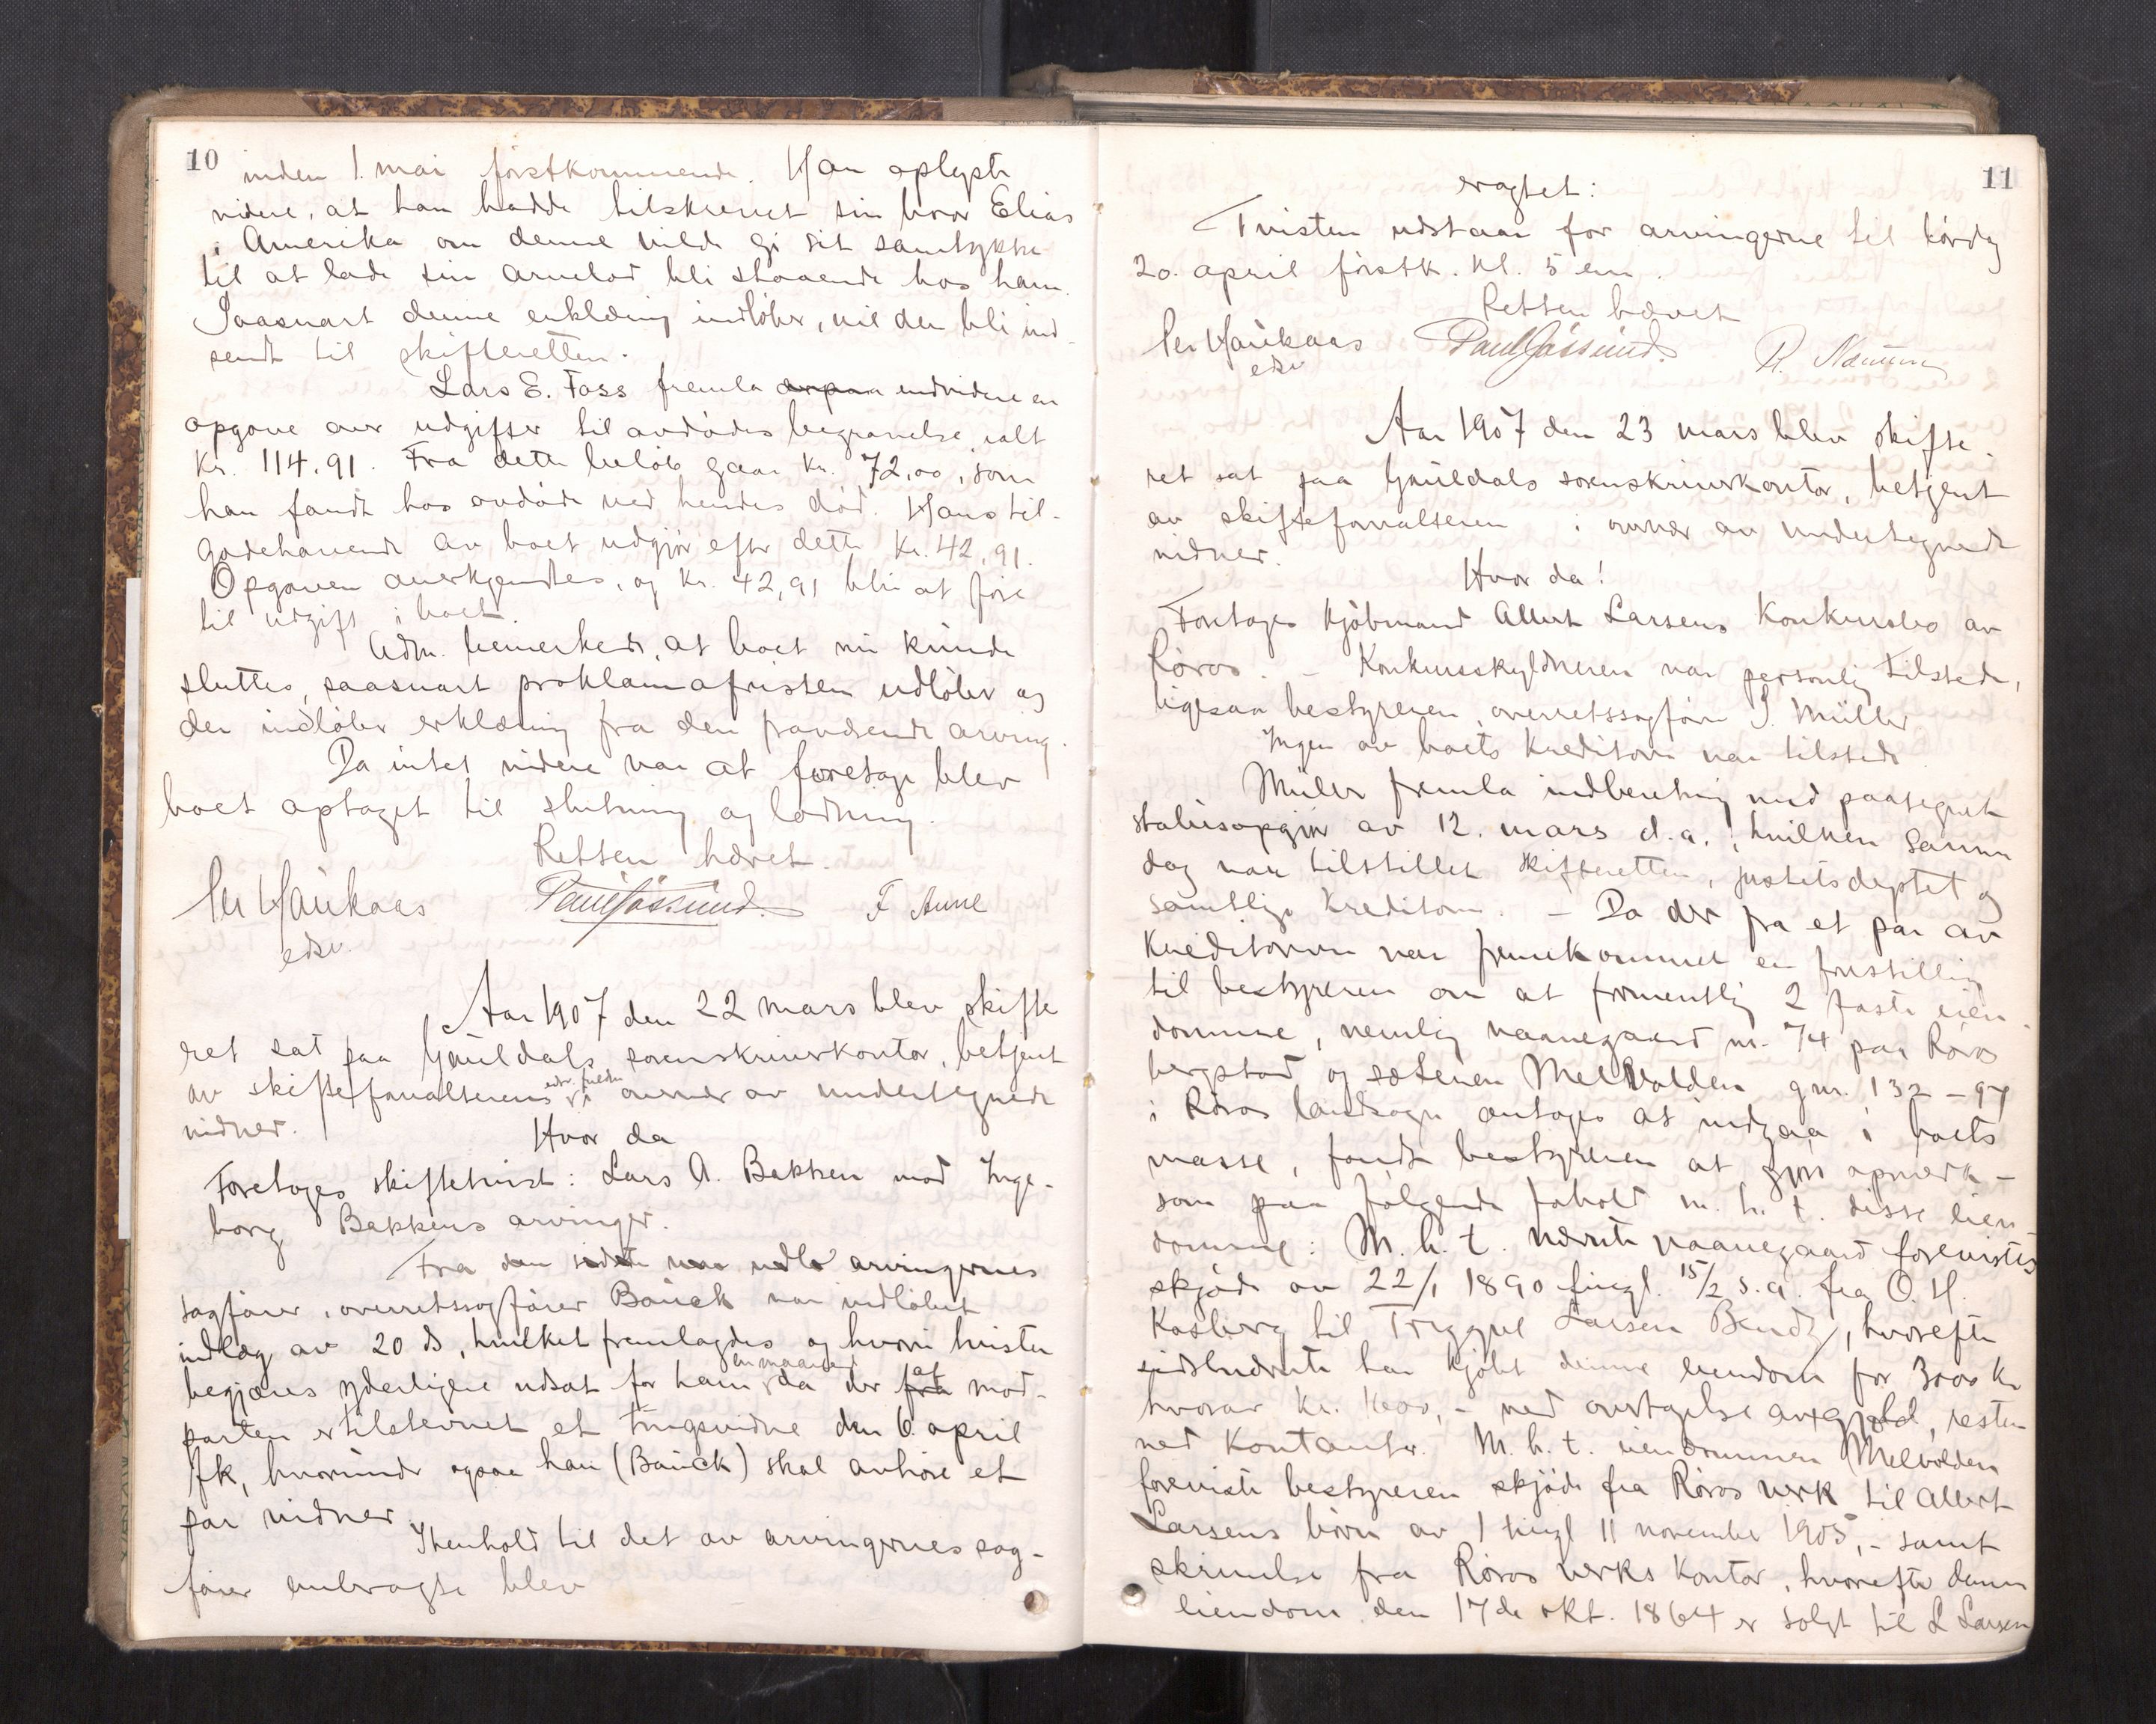 10
inden 1. mai førstkommende. Han oplyste
videre, at han hadde tilskrevet sin bror Elias
i Amerika om denne vilde gi sit samtykke
til at lade sin arvelod bli staaende hos ham.
Saasnart denne erklæring indløber, vil den bli ind-
sendt til skifteretten.
Lars E. Foss fremla endvidere en
opgave over udgifter til avdødes begravelse, ialt
kr. 114.91. Fra dette beløb gaar kr. 72,00, som
han fandt hos avdøde ved hendes død. Hans til-
godehavende av boet udgjør efter dette kr. 42,91.
Opgaven anerkjendtes, og kr. 42,91 blir at føre
til udgift i boet.
Adm. bemerkede, at boet nu kunde
sluttes, saasnart proklamafristen udløber og
der indløber erklæring fra den fraværende arving.
Da intet videre var at foretage blev
boet optaget til slutning og lodning.
Retten hævet.
Per Haukaas Paul Jossund. F. Aune
edsv.
Aar 1907 den 22 mars blev skifte
ret sat paa Guldals sorenskriverkontor, betjent
av skifteforvalterens edsv. fuldm. i overvær av undertegnede
vidner.
Hvor da
Foretoges skiftetvist: Lars A. Bakken mod Inge-
borg Bakkens arvinger.
Fra arvingernes
sagfører, overretssagfører Bauck var indløbet
indlæg av 20 ds, hvilket fremlagdes og hvori tvisten
begjæres yderligere udsat for ham en maaned da der af mod-
parten er tilstevnet et tingsvidne den 6 april
fk, hvorunder ogsaa han (Bauck) skal avhøre et
par vidner.
I henhold til det av arvingernes sag-
fører anbragte blev
11
eragtet:
Tvisten udstaar for arvingerne til lørdag
20. april førstk. kl. 5 em.
Retten hævet
Per Haukaas Paul Jossund.
edsv
Aar 1907 den 23 mars blev skifte
ret sat paa Guldals sorenskriverkontor, betjent
av skifteforvalteren i overvær av undertegnede
vidner.
Hvor da!
Foretoges kjøbmand Albert Larsens konkursbo av
Røros. – Konkursskyldneren var personlig tilstede,
ligesaa bestyreren, overretssagfører J. Müller
Ingen av boets kreditorer var tilstede
Müller fremla indberetning med paategnet
statusopgjør av 12. mars d.a., hvilken samme
dag var tilstillet skifteretten, justitsdeptet og
samtlige kreditorer. – Da der fra et par av
kreditorerne var fremkommet en forestilling
til bestyreren om at formentlig 2 faste eien-
domme, nemlig vaanegaard nr. 74 paa Røros
bergstad og sæteren Melvolden gnr. 132 – 97
i Røros landsogn antoges at indgaa i boets
masse, fandt bestyreren at gjøre opmerk-
som paa følgende forhold m. h. t. disse eien-
domme: M. h. t. nævnte vaanegaard forevistes
skjøde av 22/1 1890 tingl. 15/2 s.a. fra O. H.
Kosberg til Larsen, hvorefter
sidstnævnte har kjøbt denne eiendom for 3000 kr
hvorav kr. 1600,- ved overtagelse av gjæld, resten
ved kontanter. M. h. t. eiendommen Melvolden
foreviste bestyreren skjøde fra Røros verk til Albert
Larsens børn av 1 tingl 11 november 1905,- samt
skrivelse fra Røros verks kontor, hvorefter denne
eiendom den 17de okt. 1864 er solgt til L Larsen